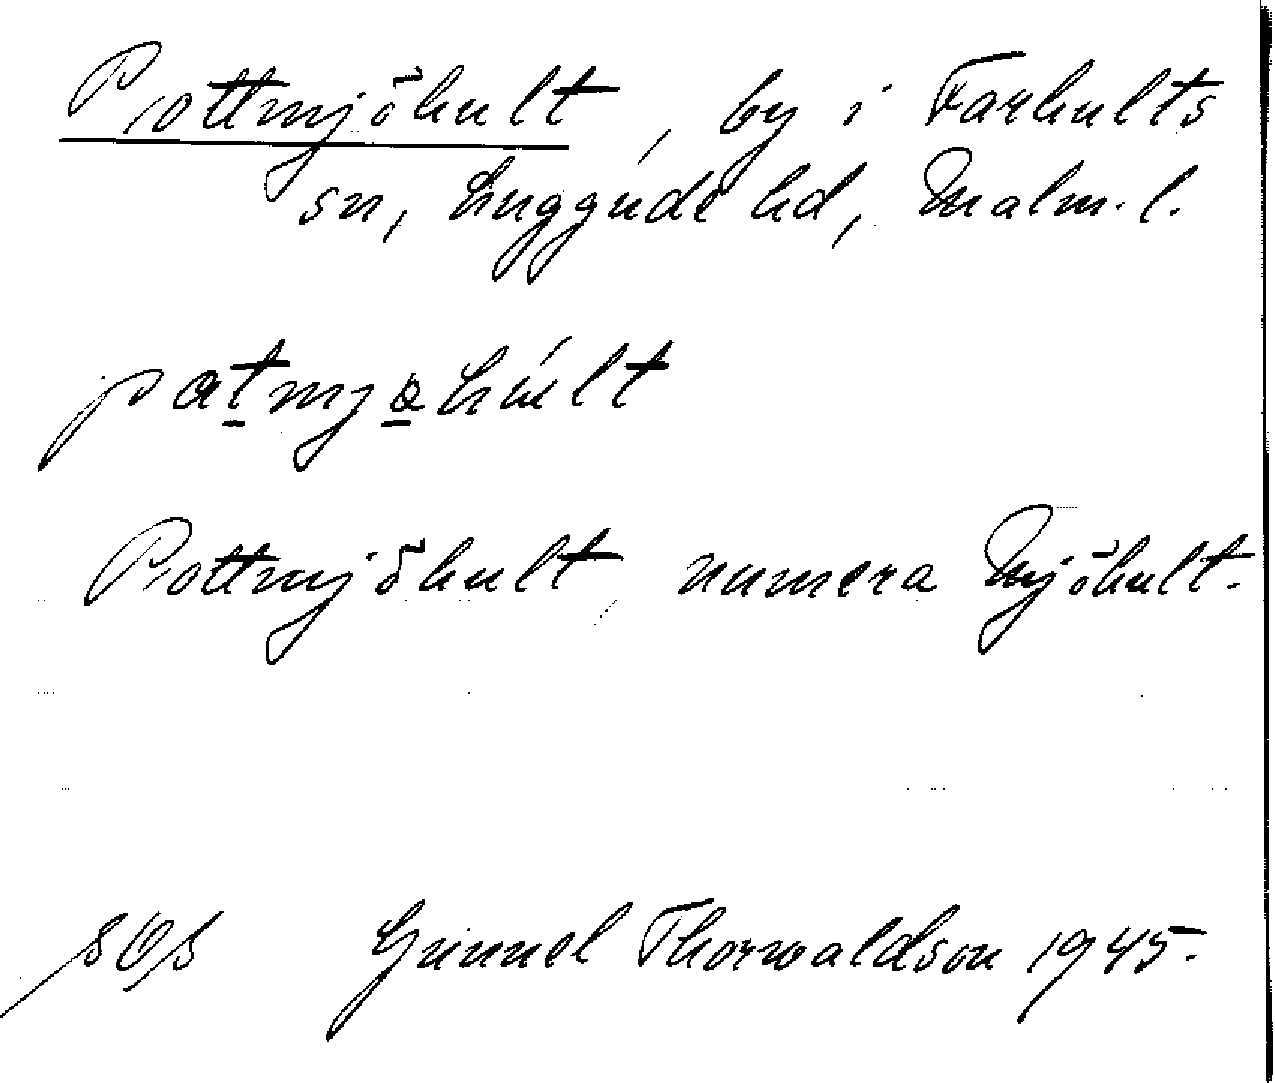 Pottmjöhult, by i Farhults
sn, Luggude hd, Malm. l.
patmjøhúlt
Pottmjöhult, numera Mjöhult.
SOS Gunnel Thorwaldson 1945.